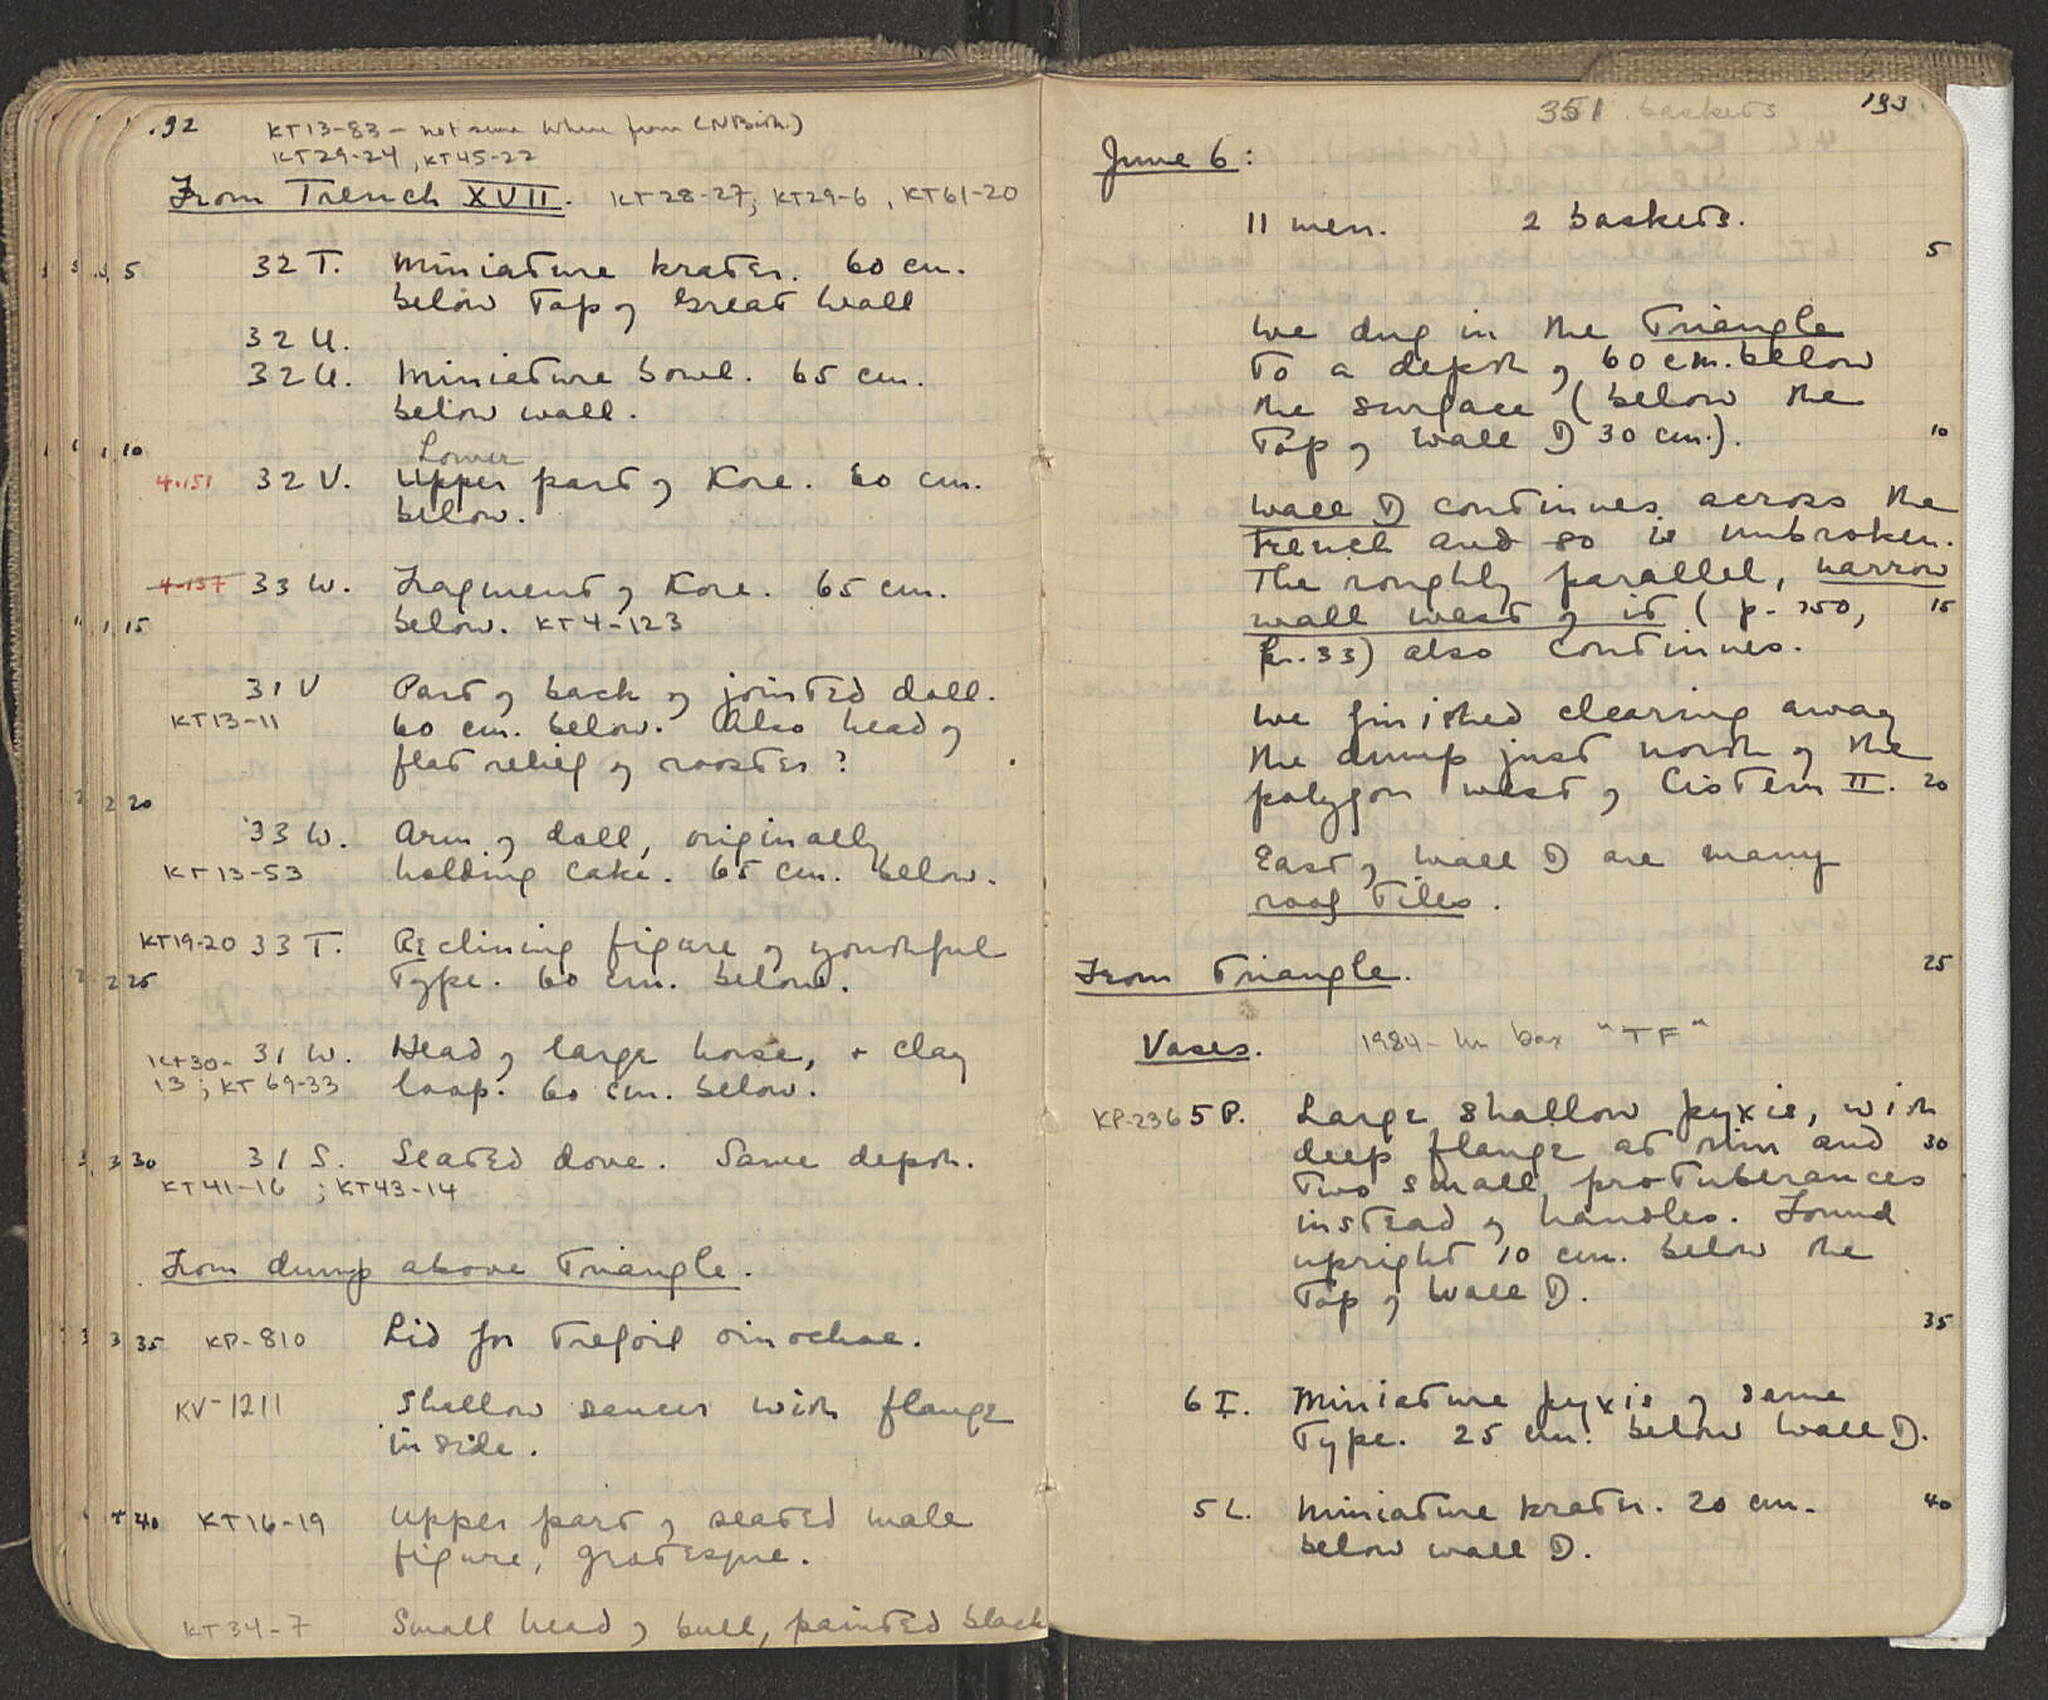 192
KT13-83 - not sure where from (NBish.)
KT29-24, KT45-22
From Trench XVII. KT28-27; KT29-6, KT61-20
5 32 T. Miniature krater. 60 cm.
below top of Great Wall
32 U.
32 U. Miniature bowl. 65 cm.
below wall.
10
Lower
4.151 32 V. Upper part of Kore. 60 cm.
below.
4-137 33 W. Fragment of Kore. 65 cm.
15 below. KT4-123
31 V Part of back of jointed doll.
KT13-11 60 cm. below. Also head of
flat relief of rooster?
20
33 W. Arm of doll, originally
KT13-53 holding cake. 65 cm. below.
KT19-20 33 T. Reclining figure of youthful
25 type. 60 cm. below.
KT30- 31 W. Head of large horse, + clay
13; KT69-33 loop. 60 cm. below.
30 31 S. Seated dove. Same depth.
KT41-16 ; KT43-14
From dump above Triangle.
35 KP-810 Lid for trefoil oinochoe.
KV-1211 Shallow saucer with flange
inside.
40 KT16-19 Upper part of seated male
figure, grotesque.
KT34-7 Small head of bull, painted black
351 baskets 193
June 6:
11 men. 2 baskets.
5
We dug in the Triangle
to a depth of 60 cm. below
the surface (below the
top of Wall D 30 cm.). 10
Wall D continues across the
trench and so is unbroken.
The roughly parallel, narrow
wall west of it (p. 150, 15
ln. 33) also continues.
We finished clearing away
the dump just north of the
polygon west of Cistern II. 20
East of Wall D are many
roof tiles.
From Triangle. 25
Vases. 1984 - in box "TF"
KP-236 5 P. Large shallow pyxis, with
deep flange at rim and 30
two small protuberances
instead of handles. Found
upright 10 cm. below the
top of Wall D.
35
6 I. Miniature pyxis of same
type. 25 cm. below Wall D.
5 L. Miniature krater. 20 cm. 40
below wall D.